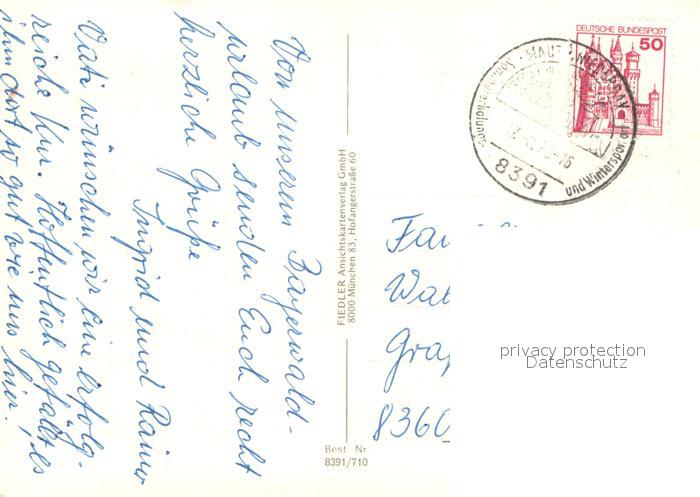 Von unserem Bayerwald-
urlaub senden Euch recht
herzliche Grüße
Ingrid und Rainer
Vati wünschen wir eine erfolg-
reiche Kur. Hoffentlich gefällt es
ihm dort so gut wie uns hier!
FIEDLER Ansichtskartenverlag GmbH
8000 München 83, Hofangerstraße 60
Best Nr
8391/710
DEUTSCHE BUNDESPOST
50
MAUT
8391
und Wintersportort
Fa
Wal
Gra
8360
privacy protection
Datenschutz